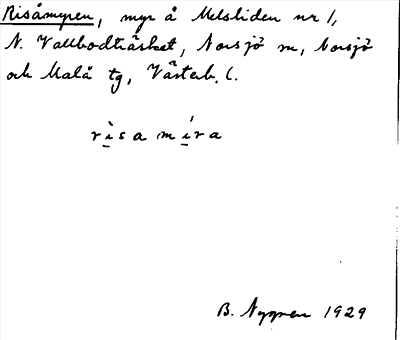 Risåmyren, myr å Melsliden nr 1,
N. Vallbodträsket, Norsjö sn, Norsjö
och Malå tg, Västerb. l.
rìsamíra
B. Nygren 1929